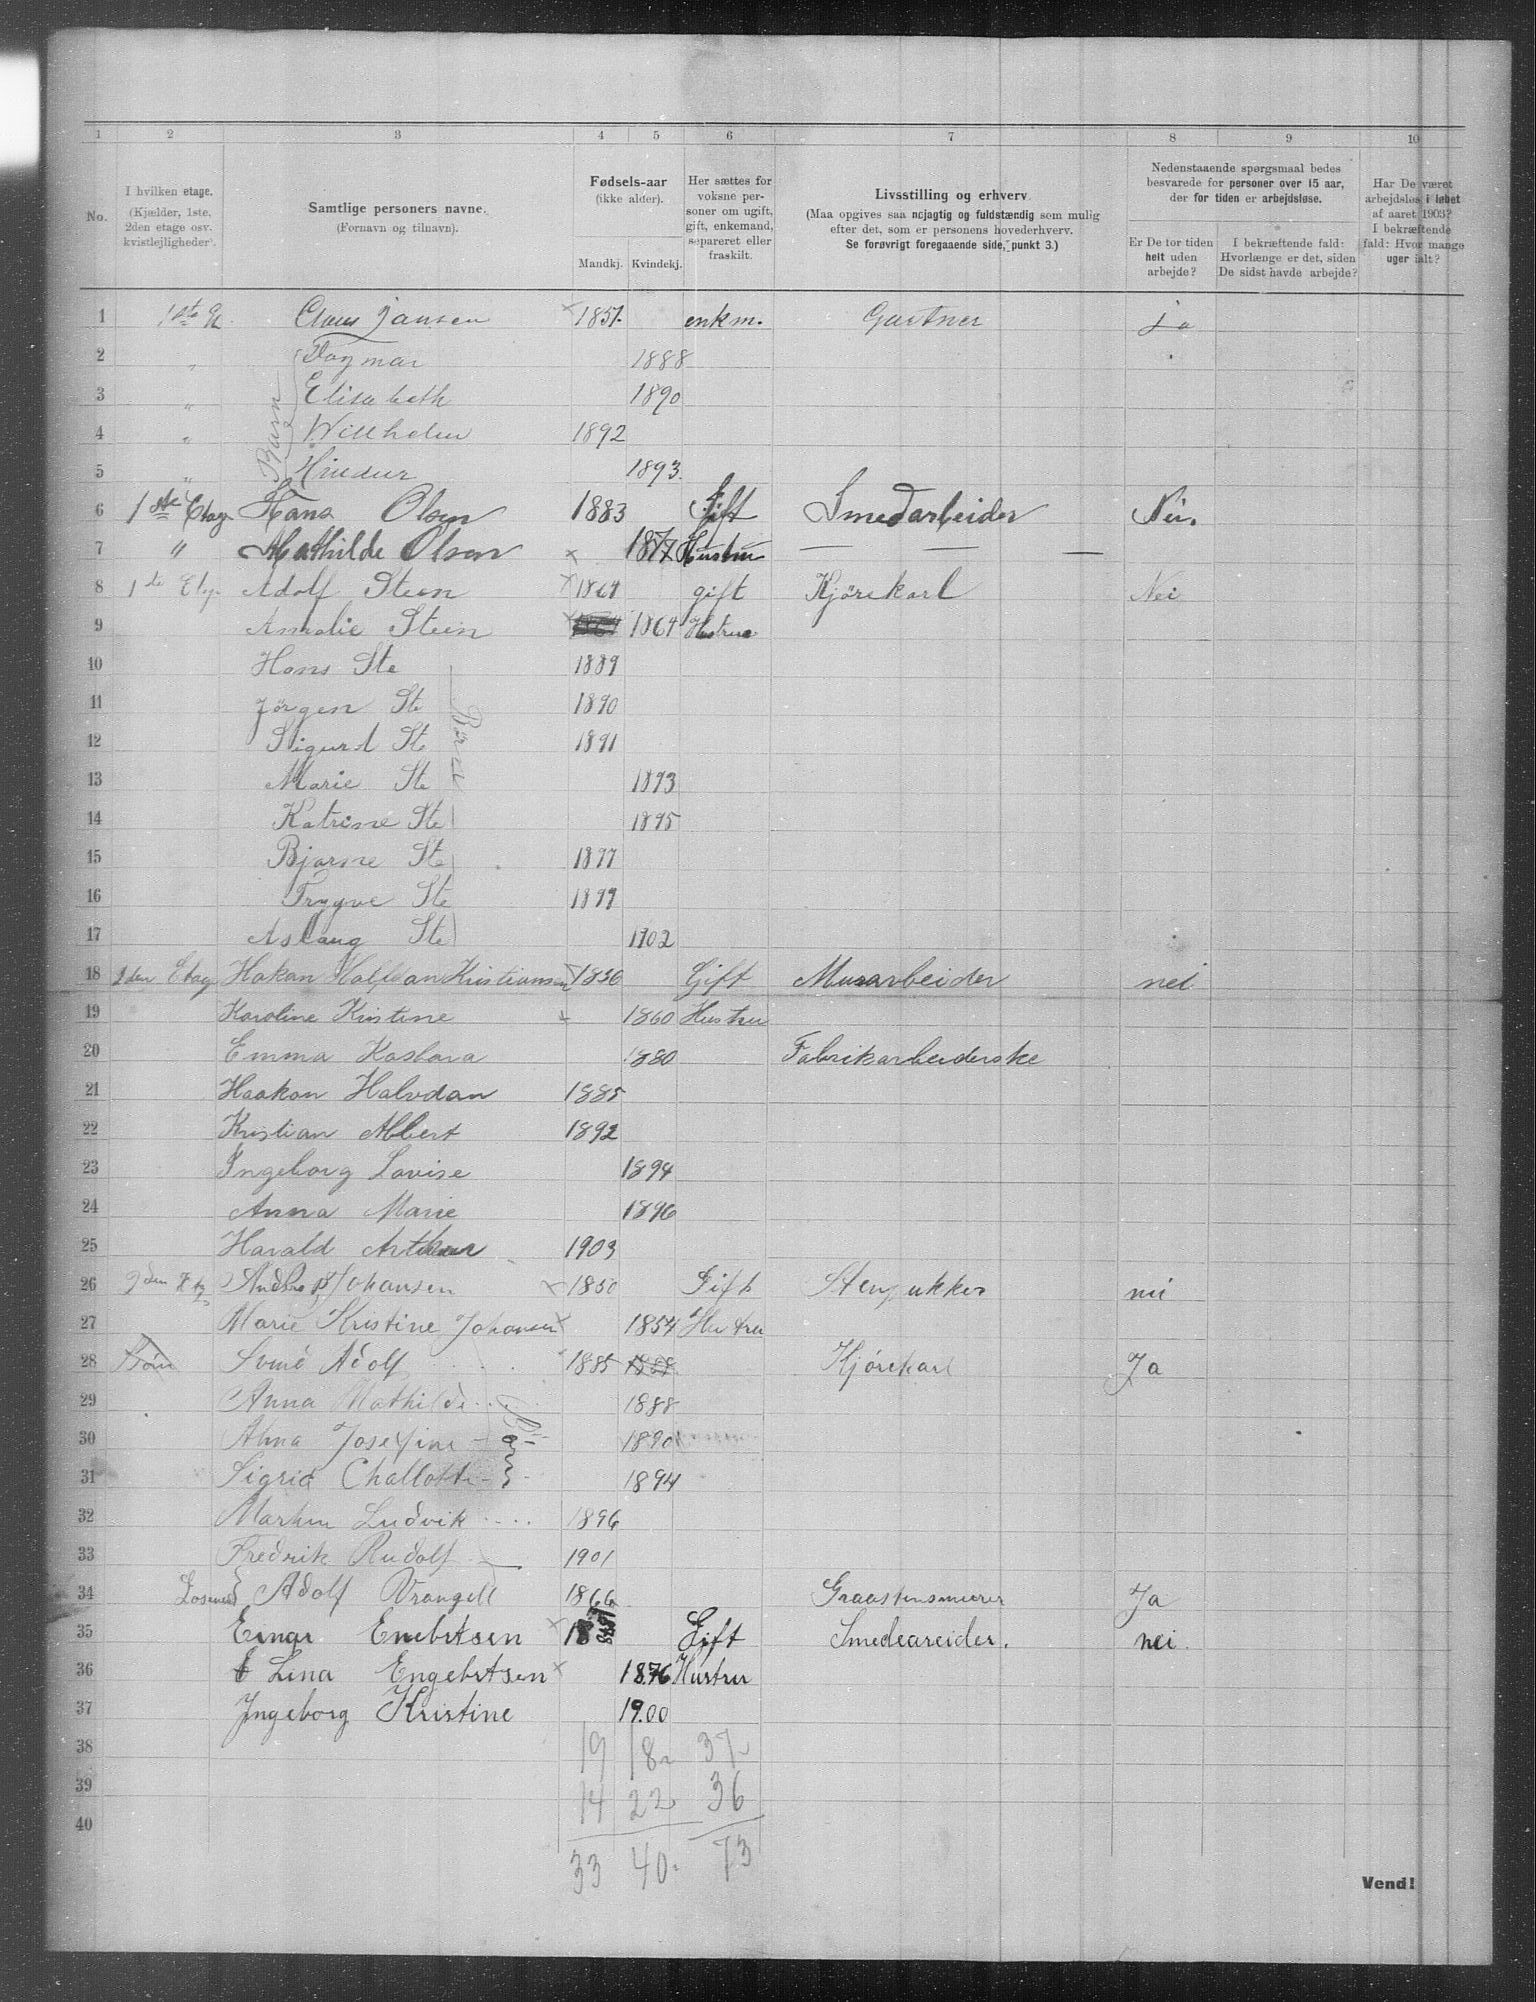 1 2 3 4 5 6 7 8 9 10
No.
I hvilken etage.
(Kjælder, 1ste,
2den etage osv.
kvistlejligheder).
Samtlige personers navne.
(Fornavn og tilnavn).
Fødsels-aar
(ikke alder).
Mandkj. Kvindekj.
Her sættes for
voksne per-
soner om ugift,
gift, enkemand,
separeret eller
fraskilt.
Livsstilling og erhverv
(Maa opgives saa nøjagtig og fuldstændig som mulig
efter det, som er personens hovederhverv.
Se forøvrigt foregaaende side, punkt 3.)
Nedenstaaende spørgsmaal bedes
besvarede for personer over 15 aar,
der for tiden er arbejdsløse.
Er De for tiden
helt uden
arbejde?
I bekræftende fald:
Hvorlænge er det, siden
De sidst havde arbejde?
Har De været
arbejdsløs i løbet
af aaret 1903?
I bekræftende
fald: Hvor mange
uger ialt?
1 1ste Claus Jansen × 1857. enkm. Gartner Ja
2 " Dagmar 1888
3 " Elisabeth 1890
4 " Willhelm 1892
5 " 1893.
Barn
6 1ste Etag. Hans Olsen 1883 Gift Smedarbeider Nei.
7 " Mathilde Olsen × 1877 Hustru — — —
8 1ste Etg. Adolf Steen × 1864 gift Kjørekarl Nei
9 Amalie Steen × 1864 Hustrue
10 Hans Ste 1889
11 Jørgen Ste 1890
12 Sigurd Ste 1891
13 Marie Ste 1893
14 Katrine Ste 1895
15 Bjarne Ste 1897
16 Trygve Ste 1899
17 Aslaug Ste 1902
Børn
18 2den Etag Hakan Halfdan Kristiansen × 1856 Gift Murarbeider nei
19 Karoline Kristine × 1860 Hustru
20 Emma Kaslara 1880 Fabrikarbeiderske
21 Haakon Halvdan 1885
22 Kristian Albert 1892
23 Ingeborg Lovise 1894
24 Anna Marie 1896
25 Harald Arthur 1903
26 2den Etg Johansen × 1850 Gift Stenpukker nei
27 Marie Kristine Johansen × 1854 Hustru
28 Børn Adolf 1885 1888 Kjørekarl Ja
29 Anna Mathilde 1888
30 Alma Josefine 1890
31 Sigrid Challotte 1894
32 Martin Ludvik 1896
33 Fredrik Rudolf 1901
34 Losernde Adolf Vrangell 1866 Ja
35 Einar Enebrtsen × 1878 Gift Smedeareider. nei.
36 Lina Engebrtsen × 1876 Hustru
37 Ingeborg Kristine 1900
38 19 18 37
39 14 22 36
40 33 40. 73
Vend!